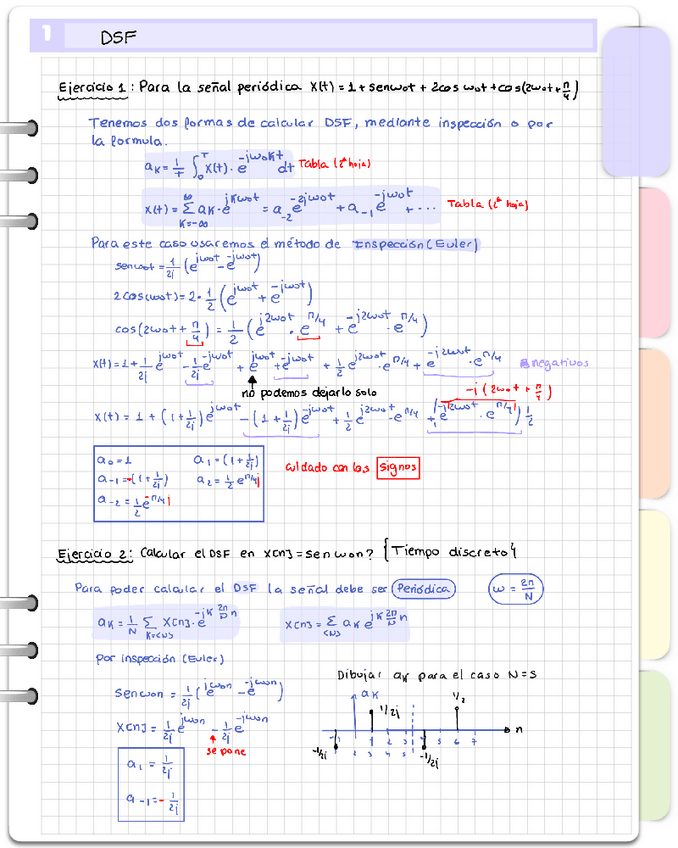 1 DSF
Ejercicio 1: Para la señal periódica x(t) = 1 + senω₀t + 2cos ω₀t + cos(2ω₀t + π/4)
Tenemos dos formas de calcular DSF, mediante inspección o por
la formula.
aₖ = 1/T ∫₀ᵀ x(t)·e^(-jω₀kt) dt Tabla (2ª hoja)
x(t) = Σ_(k=-∞)^∞ aₖ·e^(jkω₀t) = a₋₂e^(-2jω₀t) + a₋₁e^(-jω₀t) + ... Tabla (2ª hoja)
Para este caso usaremos el método de Inspección (Euler)
senω₀t = 1/2j (e^(jω₀t) - e^(-jω₀t))
2cos(ω₀t) = 2·1/2 (e^(jω₀t) + e^(-jω₀t))
cos(2ω₀t + π/4) = 1/2 (e^(j2ω₀t)·e^(π/4) + e^(-j2ω₀t)·e^(π/4))
x(t) = 1 + 1/2j e^(jω₀t) - 1/2j e^(-jω₀t) + e^(jω₀t) + e^(-jω₀t) + 1/2 e^(j2ω₀t)·e^(π/4) + e^(-j2ω₀t)·e^(π/4) negativos
no podemos dejarlo solo -j(2ω₀t + π/4)
x(t) = 1 + (1 + 1/2j)e^(jω₀t) - (1 + 1/2j)e^(-jω₀t) + 1/2 e^(j2ω₀t)·e^(π/4) + (e^(-j2ω₀t)·e^(π/4 j)) 1/2
a₀ = 1 a₁ = (1 + 1/2j)
a₋₁ = -(1 + 1/2j) a₂ = 1/2 e^(π/4 j)
a₋₂ = 1/2 e^(-π/4 j)
cuidado con los signos
Ejercicio 2: Calcular el DSF en x[n] = sen ω₀n? {Tiempo discreto}
Para poder calcular el DSF la señal debe ser Periódica ω = 2π/N
aₖ = 1/N Σ_(k=<N>) x[n]·e^(-jk 2π/N n) x[n] = Σ_(<N>) aₖ e^(jk 2π/N n)
por inspección (Euler)
Dibujar aₖ para el caso N=5
sen ω₀n = 1/2j (e^(jω₀n) - e^(-jω₀n))
x[n] = 1/2j e^(jω₀n) - 1/2j e^(-jω₀n)
se pone
a₁ = 1/2j
a₋₁ = -1/2j
aₖ 1/2j 1/2
n
-1/2j -1/2j